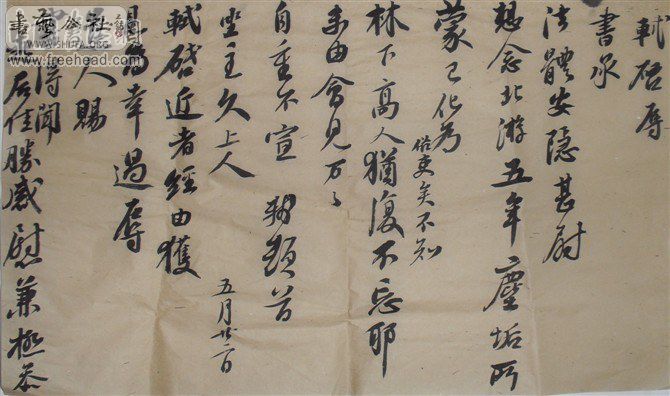 軾啓辱
書承
法體安隱甚尉
想念北游五年塵垢所
蒙已化為
俗吏矣不知
林下高人猶復不忘耶
未由會見万々
自重不宣 軾頓首
坐主久上人
五月廿二日
軾啓近者經由獲
見為幸過辱
人賜
得聞
居佳勝感慰兼極忝
www.freehead.com